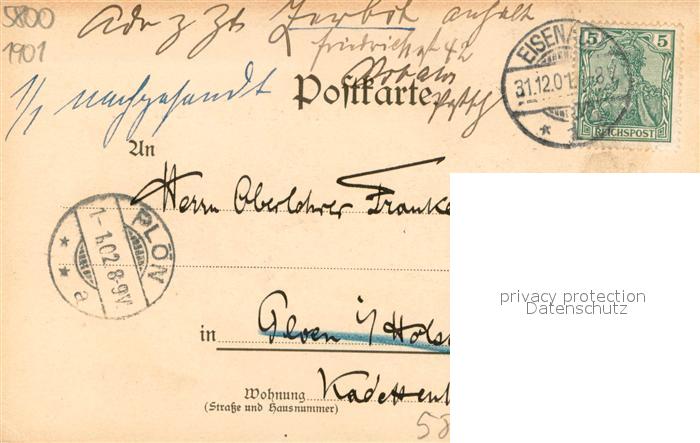 5800
1901
Adr z Zt Zerbst anhalt
Friedrichst 42
1/1 nachgesandt
Postkarte
EISENA
31.12.01
5 5
REICHSPOST
An
Herrn Oberlehrer Franke
PLÖN
1-1.02.8-9V.
a
privacy protection
Datenschutz
in Ploen i/ Hols
Wohnung
(Straße und Hausnummer)
Kadetten
58